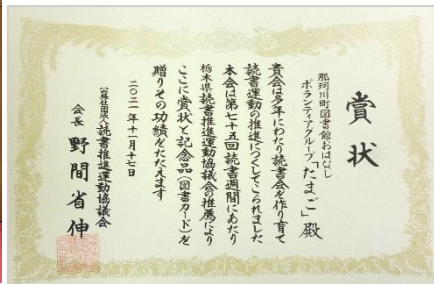 賞状
那珂川町図書館おはなし
ボランティアグループ「たまご」殿
貴会は多年にわたり読書会を作り育て
読書運動の推進につくしてこられました
本会は第七十五回読書週間にあたり
栃木県読書推進運動協議会の推薦により
ここに賞状と記念品(図書カード)を
贈りその功績をたたえます
二〇二一年十一月十七日
公益社団法人読書推進運動協議会
会長 野間省伸